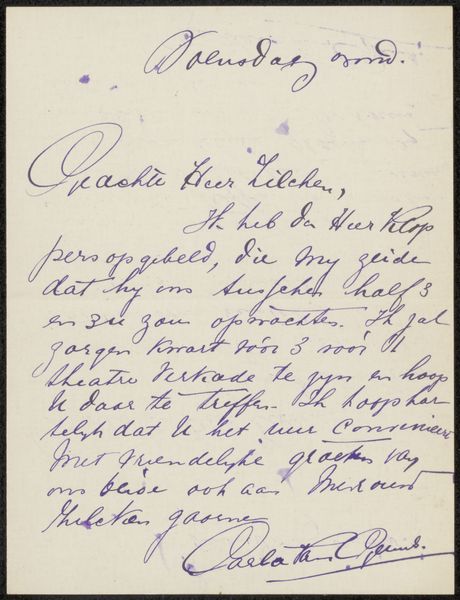 Woensdag avond.
Geachte Heer Zilcken,
Ik heb den Heer Klop
pers opgebeld, die my zeide
dat hy ons tusschen half 3
en 3u zou opwachten. Ik zal
zorgen kwart vóór 3 vóór 't
theatre Verkade te zyn en hoop
U daar te treffen. Ik hoop har
telyk dat U het uur convenieert
Met vriendelyke groeten van
ons beide ook aan Mevrouw
Zilcken gaarne